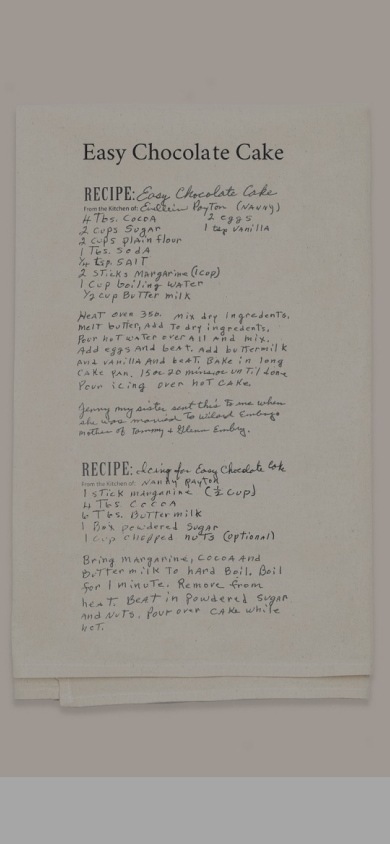 Easy Chocolate Cake
RECIPE: Easy Chocolate Cake
From the Kitchen of: Payton (NANNY)
4 Tbs. Cocoa 2 eggs
2 cups Sugar 1 tsp vanilla
2 cups plain flour
1 Tbs. Soda
1/4 tsp. SALT
2 STicks Margarine (1cup)
1 Cup boiling water
1/2 cup BuTTer milk
HeaT oven 350. Mix dry ingredents.
MelT butter, Add To dry ingredents.
Pour hoT water over All and mix.
Add eggs And beat. Add buttermilk
and vanilla And beaT. Bake in long
CAKe PAn. 15 or 20 mins or unTil done
Pour icing over hoT CAKe.
Jenny my sister sent this to me when
she was married to Wilard Embry
mother of Tommy & Glenn Embry.
RECIPE: Icing for Easy Chocolate Cake
From the Kitchen of: Nanny Payton
1 stick margarine (1/2 cup)
4 Tbs. Cocoa
6 Tbs. Buttermilk
1 Box powdered Sugar
1 cup chopped nuTs (optional)
Bring margarine, Cocoa And
Butter milk To hArd Boil. Boil
for 1 minute. Remove from
heaT. BeaT in Powdered Sugar
and NuTs. Pour over CAKe while
hoT.